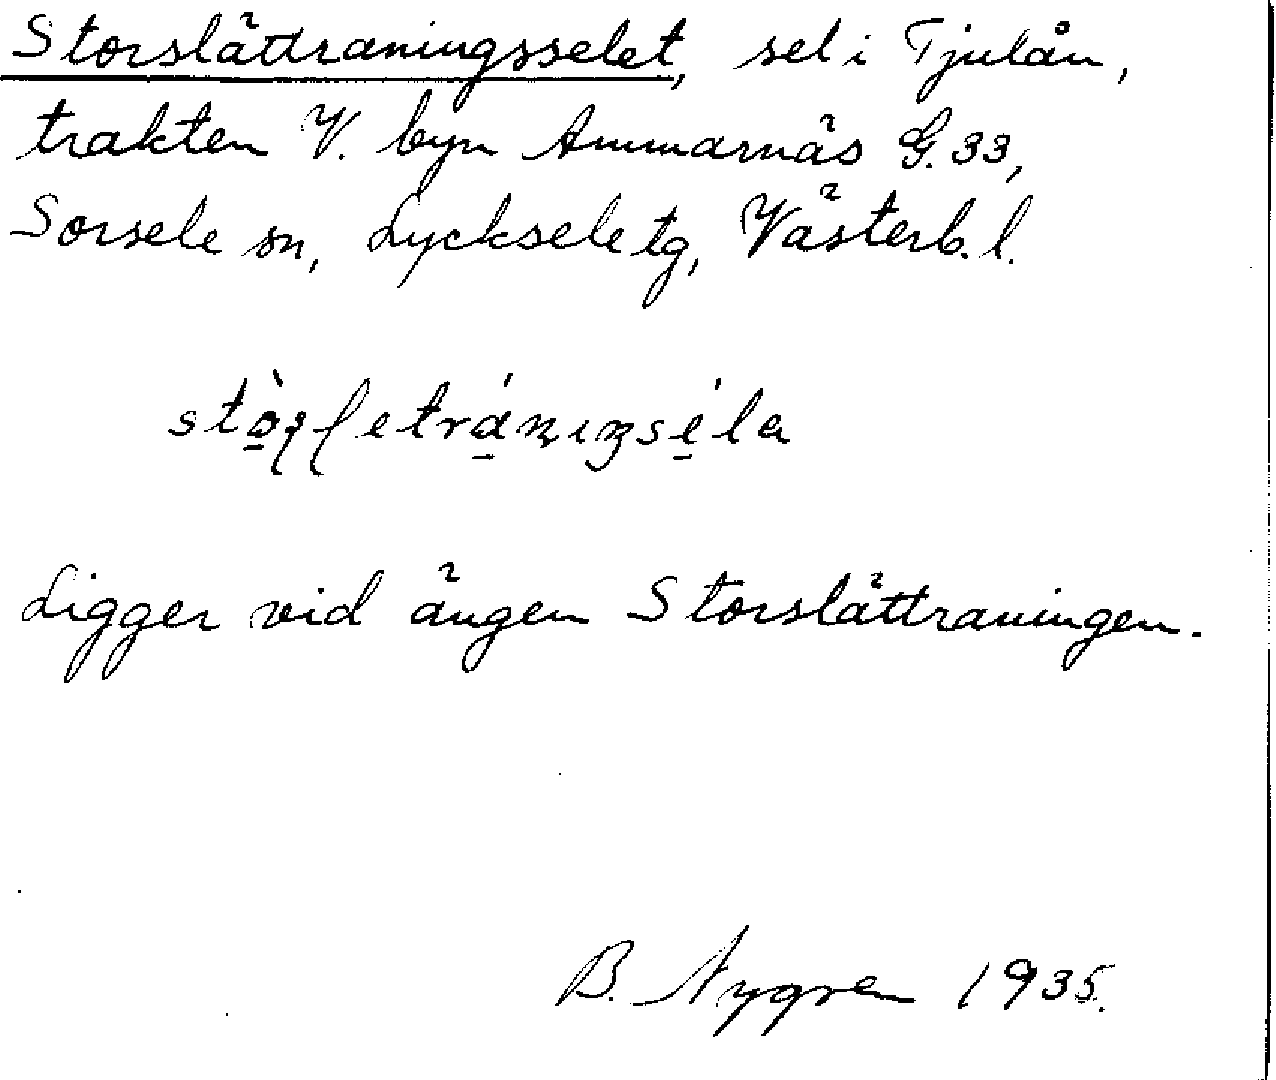 Storslättraningsselet, sel i Tjulån,
trakten V. byn Ammarnäs G. 33,
Sorsele sn, Lycksele tg, Västerb. l.
Ligger vid ängen Storslättraningen.
B. Nygren 1935.